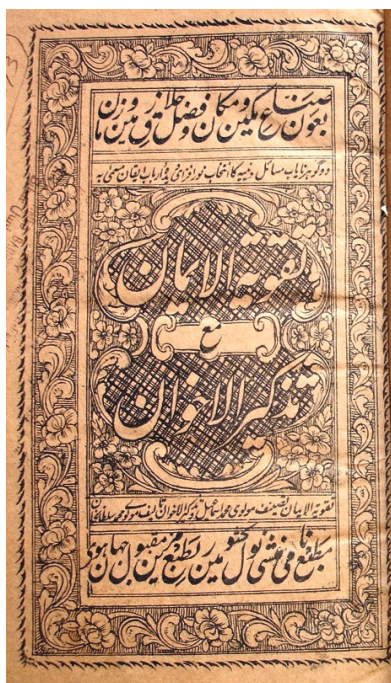 بعون صناع مکین و مکان و فضل خلاق زمین و زمان
دو گوہر نایاب مسائل دینیہ کا انتخاب نور افزای دیدۂ ارباب یقان مسمی بہ
تقویة الایمان
مع
تذکیر الاخوان
تقویة الایمان تصنیف مولوی محمد اسماعیل و تذکیر الاخوان تالیف مولوی محمد سلطان
مطبع نامی منشی نول کشور مین بطبع مزین مقبول جہان ہوی